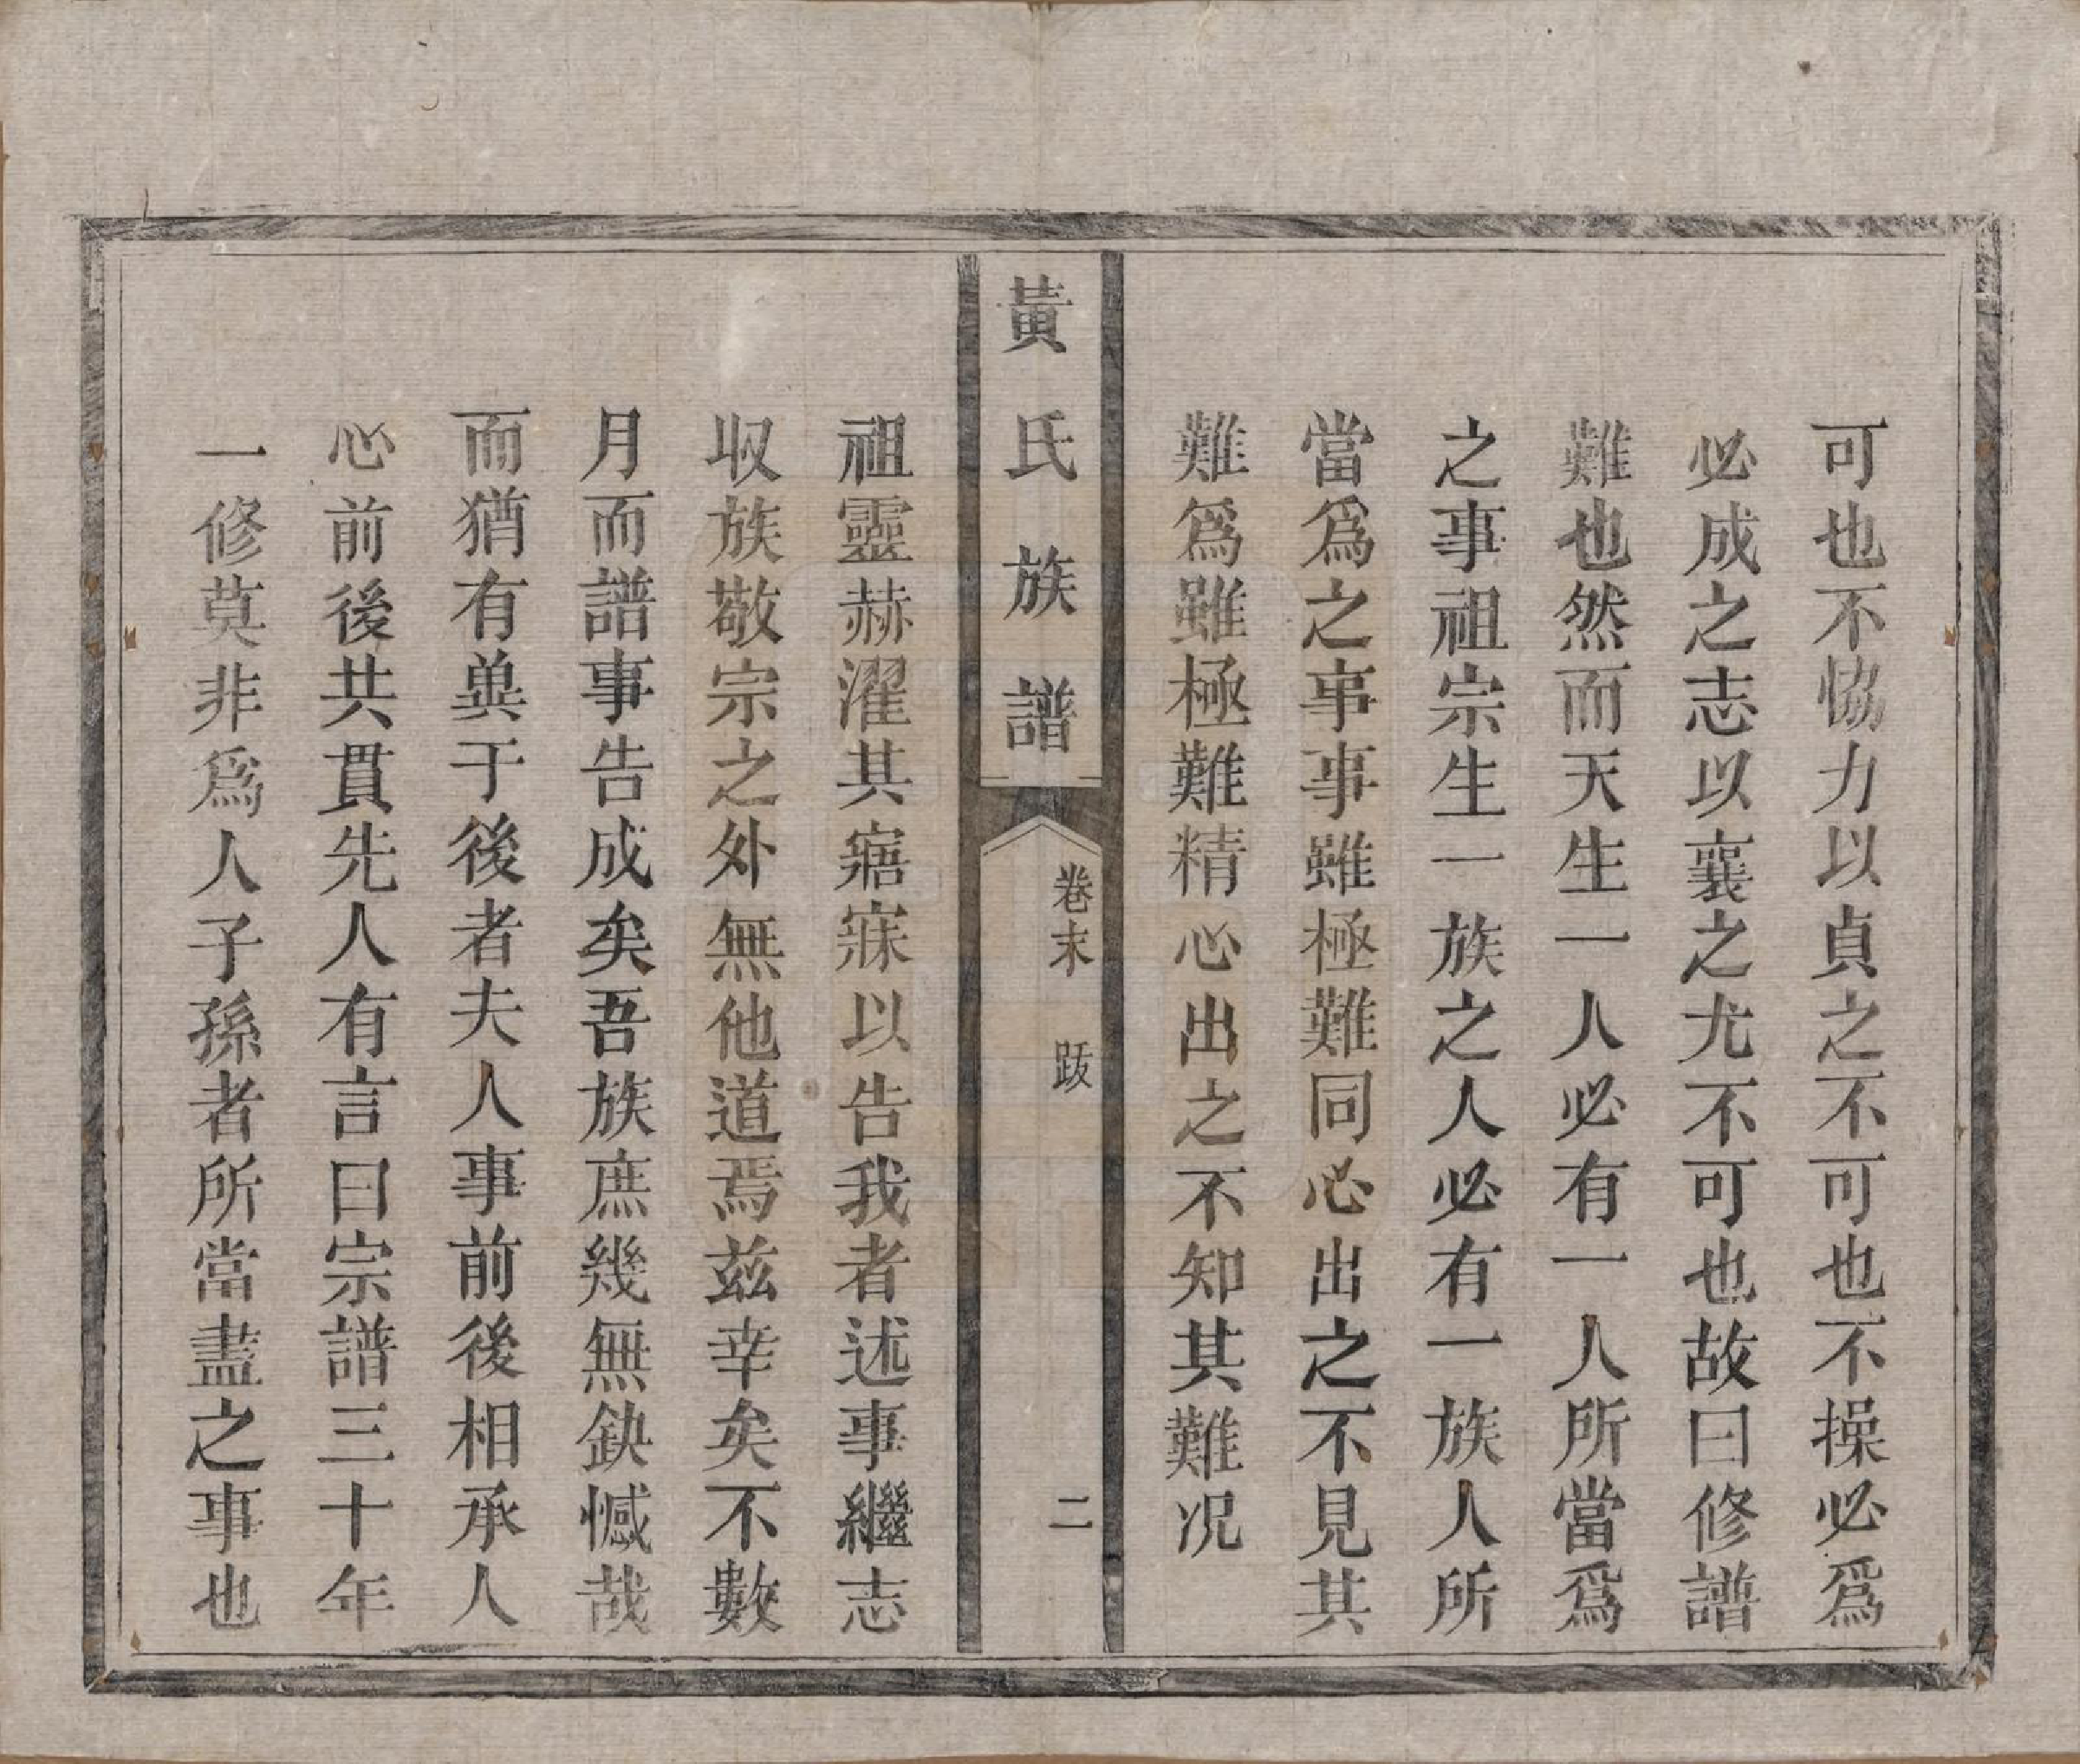 可也不恊力以貞之不可也不操必爲
必成之志以襄之尤不可也故曰修譜
難也然而天生一人必有一人所當爲
之事祖宗生一族之人必有一族人所
當爲之事事雖極難同心出之不見其
難爲雖極難精心出之不知其難况
黃氏族譜
卷末
跋
二
祖靈赫濯其寤寐以告我者述事繼志
収族敬宗之外無他道焉兹幸矣不數
月而譜事告成矣吾族庶幾無缺憾哉
而猶有冀于後者夫人事前後相承人
心前後共貫先人有言曰宗譜三十年
一修莫非爲人子孫者所當盡之事也